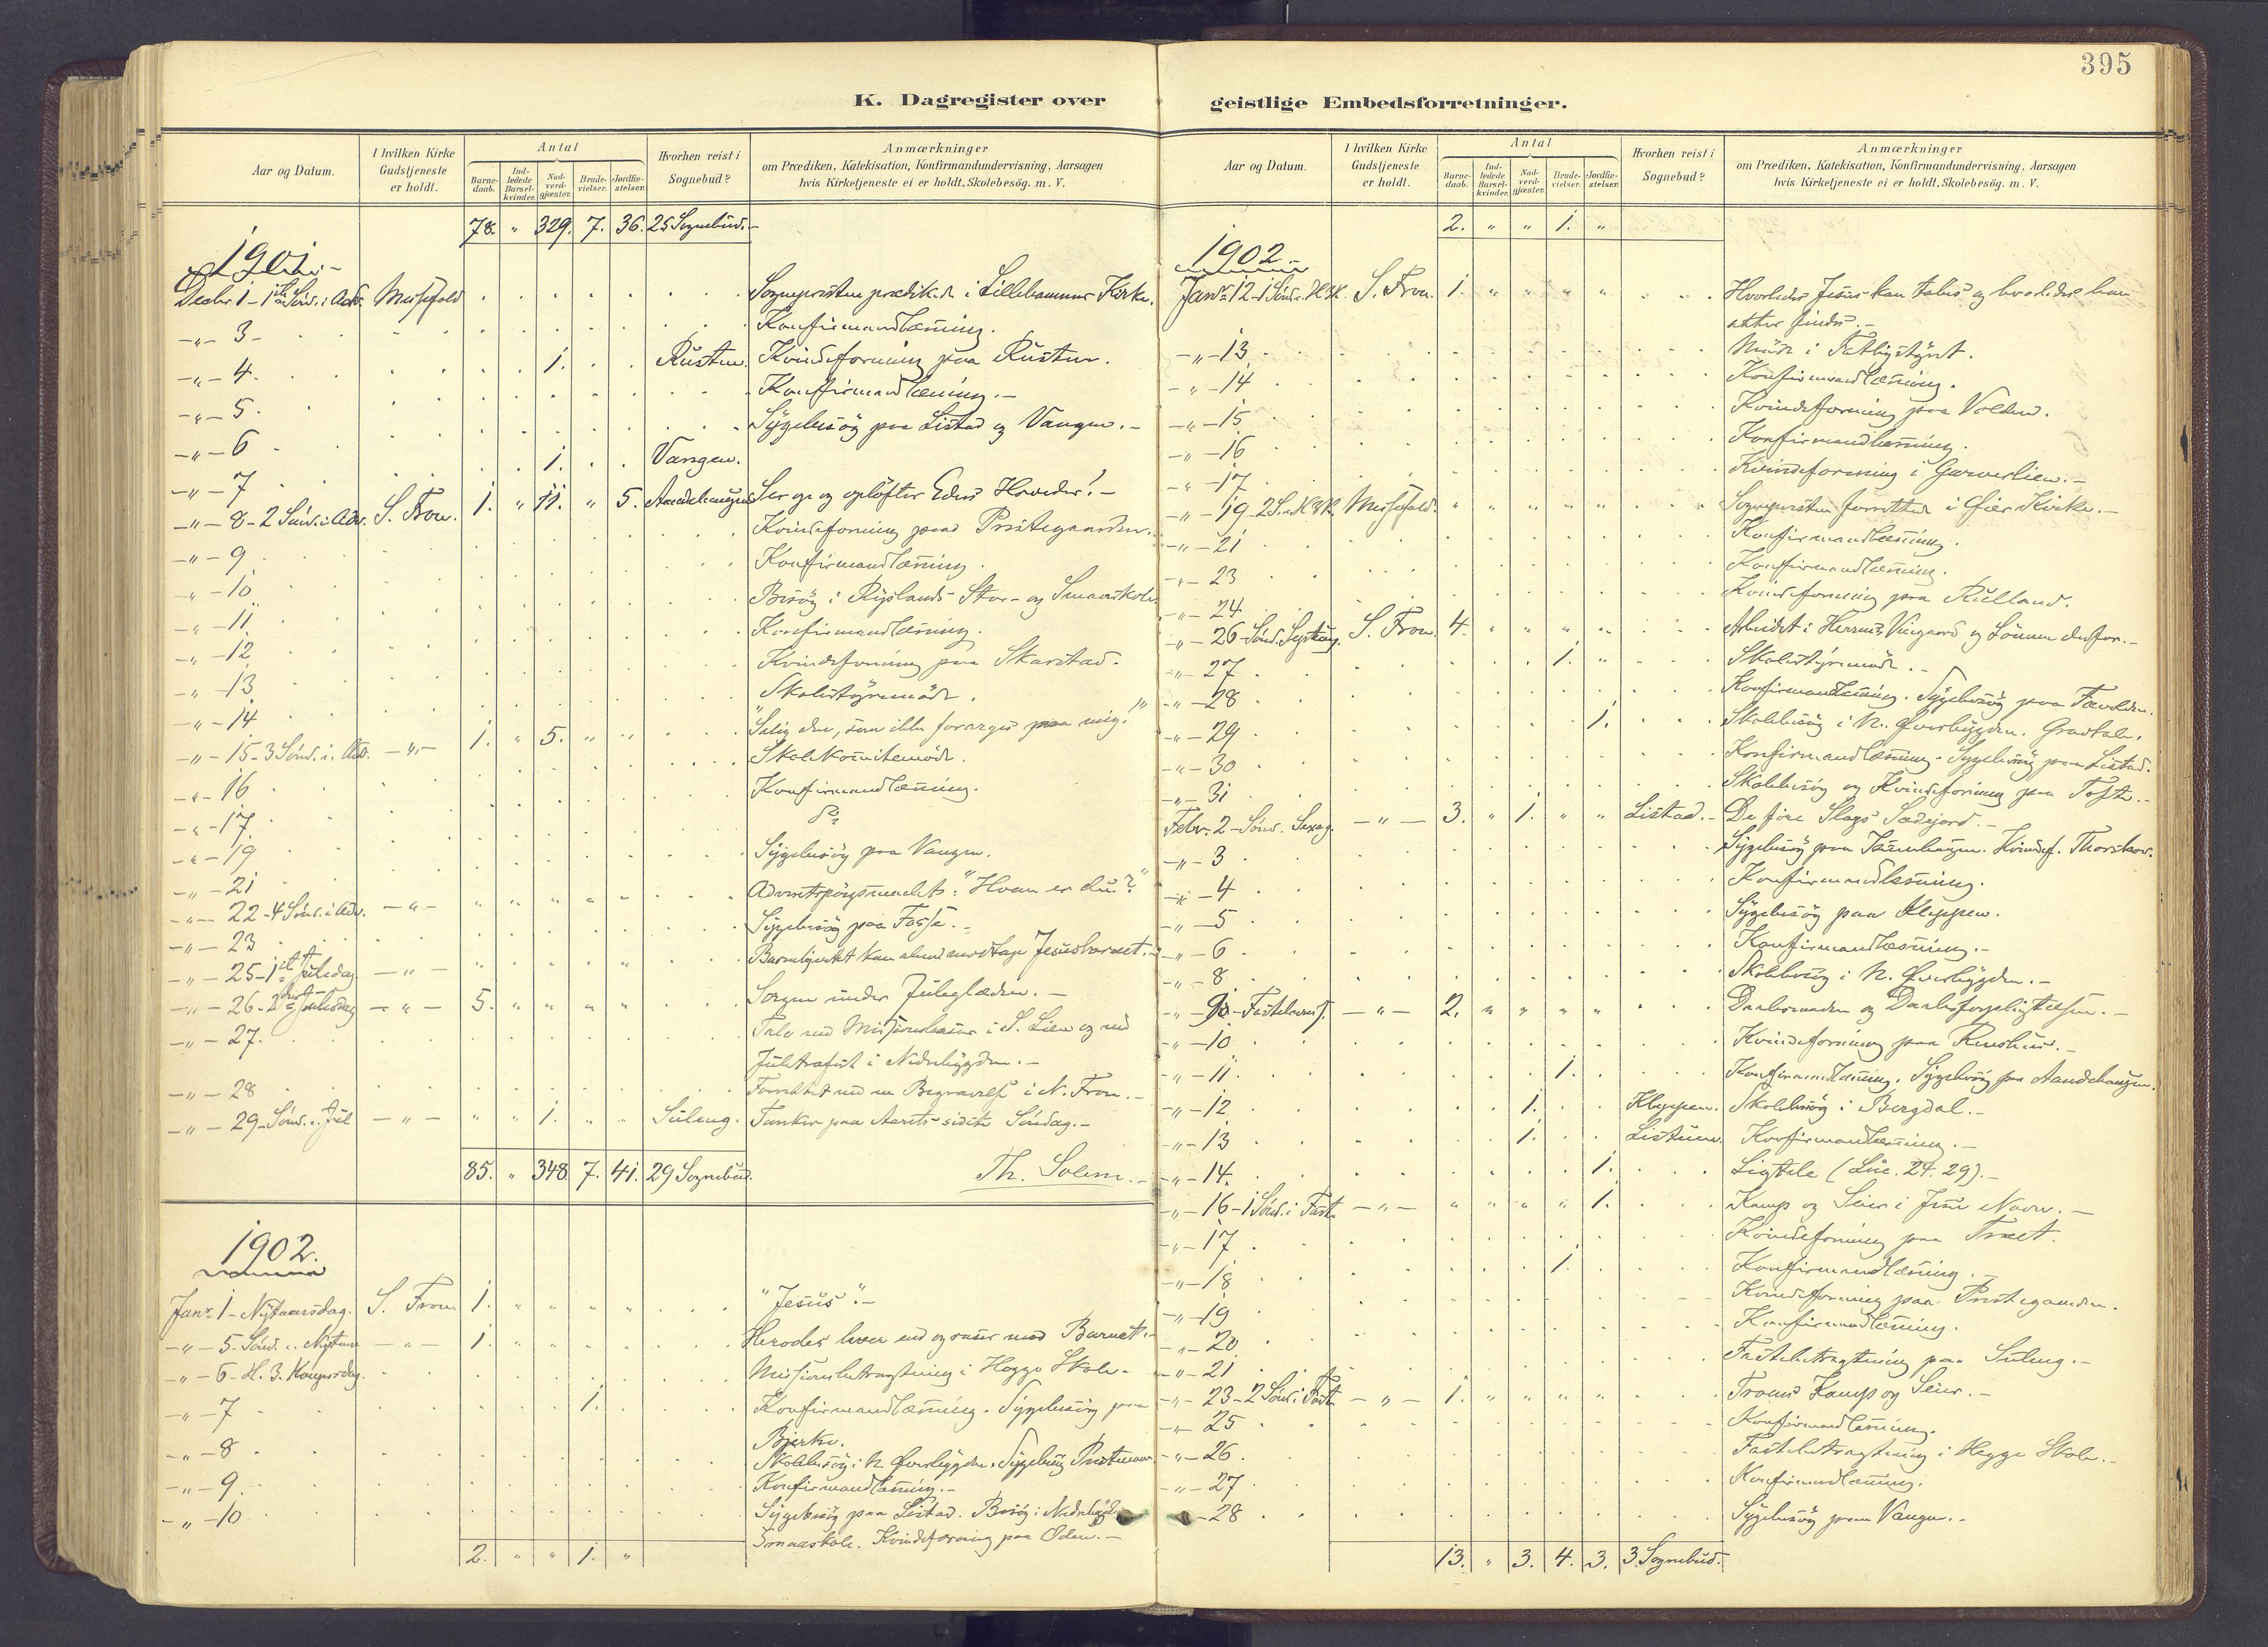 395
K. Dagregister over
Aar og Datum.
I hvilken Kirke Gudstjeneste er holdt.
Antal
Barnedaab.
Indledede Barselkvinder.
Nadverdgjæster.
Brudevielser.
Jordfæstelser.
Hvorhen reist i Sognebud?
Anmærkninger
om Prædiken, Katekisation, Konfirmandundervisning, Aarsagen
hvis Kirketjeneste ei er holdt, Skolebesög. m. V.
78. " 329. 7. 36. 25 Sognebud.-
1901.-
Decbr 1 - 1ste Sönd. i Adv. Messefald Sognepresten prædikede i Lillehammer Kirke.
-"- 3- Konfirmandlæsning.
-"- 4. 1. Rusten. Kvindeforening paa Rusten.
-"- 5. Konfirmandlæsning.-
-"- 6 Sygebesög paa Listad og Vangen.-
-"- 7 1. Vangen.
-"- 8 - 2 Sönd. i Adv. S. Fron. 1. " 11. " 5. Ser op og opløfter Eders Hoveder!-
-"- 9 Kvindeforening paa Prestegaarden.
-"- 10 Konfirmandlæsning.
-"- 11 Besög i Ryslands Stor- og Smaaskole.
-"- 12 Konfirmandlæsning.
-"- 13 Kvindeforening paa Skarstad.
-"- 14 Skolestyremöde.
-"- 15 - 3 Sönd. i Adv. -"- 1. " 5. " " "Salig den, som ikke forarges paa mig!"
-"- 16 Skolekomitemöde.
-"- 17. Konfirmandlæsning.
-"- 19 Do
-"- 21 Sygebesög paa Vangen.
-"- 22 - 4 Sönd. i Adv. -"- " " " " " Adventspörgsmaalet: "Hvem er du?"
-"- 23 Sygebesög paa Fosse.-
-"- 25 - 1ste Juledag -"- " " " " " Barnehjertet kan alene modtage Jesusbarnet.-
-"- 26 - 2den Juledag -"- 5. " " " " Sorgen under Juleglæden.-
-"- 27. Tale ved Missionsbasar i S. Lien og ved
Juletræfest i Nedrebygden.-
-"- 28 Forrettet ved en Begravelse i N. Fron.-
-"- 29 - Sönd. e. Jul -"- " " 1. " " Suleng. Tanker paa Aarets sidste Söndag.-
85. " 348 7. 41. 29 Sognebud. Th. Solem.-
1902.
Janr. 1 - Nytaarsdag. S. Fron 1. " " " " "Jesus".-
-"- 5 - Sönd. e. Nytaar -"- 1. " " " " Herodes lever end og raser mod Barnet.-
-"- 6 - H. 3. Kongersdag. Missionsbetragtning i Hegge Skole.-
-"- 7 1. Konfirmandlæsning. Sygebesög paa
Bjerke.
-"- 8 Skolebesög i N. Øverbygden. Sygebesög
-"- 9. Konfirmandlæsning.-
-"- 10 Sygebesög paa Listad. Besög i Nedrebygdens
Smaaskole. Kvindeforening paa Öden.-
2. " " 1. "
geistlige Embedsforretninger.
Aar og Datum.
I hvilken Kirke Gudstjeneste er holdt.
Antal
Barnedaab.
Indledede Barselkvinder.
Nadverdgjæster.
Brudevielser.
Jordfæstelser.
Hvorhen reist i Sognebud?
Anmærkninger
om Prædiken, Katekisation, Konfirmandundervisning, Aarsagen
hvis Kirketjeneste ei er holdt, Skolebesög. m. V.
2. " " 1. "
1902.-
Janr. 12 - 1 Sönd. e. H3K. S. Fron. 1. " " " " Hvorledes Jesus kan tabes og hvorledes han
atter findes.-
-"- 13 Möde i Fattigstyret.
-"- 14 Konfirmandlæsning.
-"- 15 Kvindeforening paa Volden.
-"- 16 Konfirmandlæsning.
-"- 17 Kvindeforening i Garverlien.-
-"- 19 - 2 S. e. H3K. Messefald. " " " " " Sognepresten forrettede i Øier Kirke.-
-"- 21 Konfirmandlæsning.
-"- 23 Konfirmandlæsning.
-"- 24 Kvindeforening paa Rulland.
-"- 26 - Sönd. Septuag. S. Fron. 4. " " " " Arbeidet i Herrens Vingaard og Lönnen derfor.-
-"- 27 1. " Skolestyremöde.-
-"- 28 Konfirmandlæsning. Sygebesög paa
-"- 29 1. Skolebesög i N. Øverbygden. Gravtale.
-"- 30 Konfirmandlæsning. Sygebesög paa Listad.
-"- 31 Skolebesög og Kvindeforening paa Tofte.-
Febr. 2 - Sönd. Sexag. -"- 3. " 1. " " Listad.- De fire Slags Sædejord.-
-"- 3 Sygebesög paa Kvindef. Thorstad.
-"- 4 Konfirmandlæsning.
-"- 5 Sygebesög paa Kleppen.
-"- 6 Konfirmandlæsning.-
-"- 8 Skolebesög i N. Øverbygden.-
-"- 9 - Fastelavns S. -"- 2. " " " " Daabsnaaden og Daabsforpligtelsen.-
-"- 10 Kvindeforening paa
-"- 11. 1. Konfirmandlæsning. Sygebesög paa Aandehaugen.
-"- 12 1. Kleppen. Skolebesög i Bergdal.-
-"- 13 1. Konfirmandlæsning.-
-"- 14. 1. Ligtale (Luc. 2,29).-
-"- 16 - 1 Sönd. i Faste -"- " " " " 1. Kamp og Seier i Jesu Navn.-
-"- 17 Kvindeforening paa Træet.
-"- 18 1. Konfirmandlæsning.-
-"- 19 Kvindeforening paa Prestegaarden.
-"- 20 Konfirmandlæsning.
-"- 21 Fastebetragtning paa Suleng.-
-"- 23 - 2 Sönd. i Faste -"- 1. " " " " Troens Kamp og Seier.-
-"- 25 Konfirmandlæsning.
-"- 26 Fastebetragtning i Hegge Skole.-
-"- 27 Konfirmandlæsning.
-"- 28 Sygebesög paa Vangen.-
13. " 3. 4. 3. 3 Sognebud.